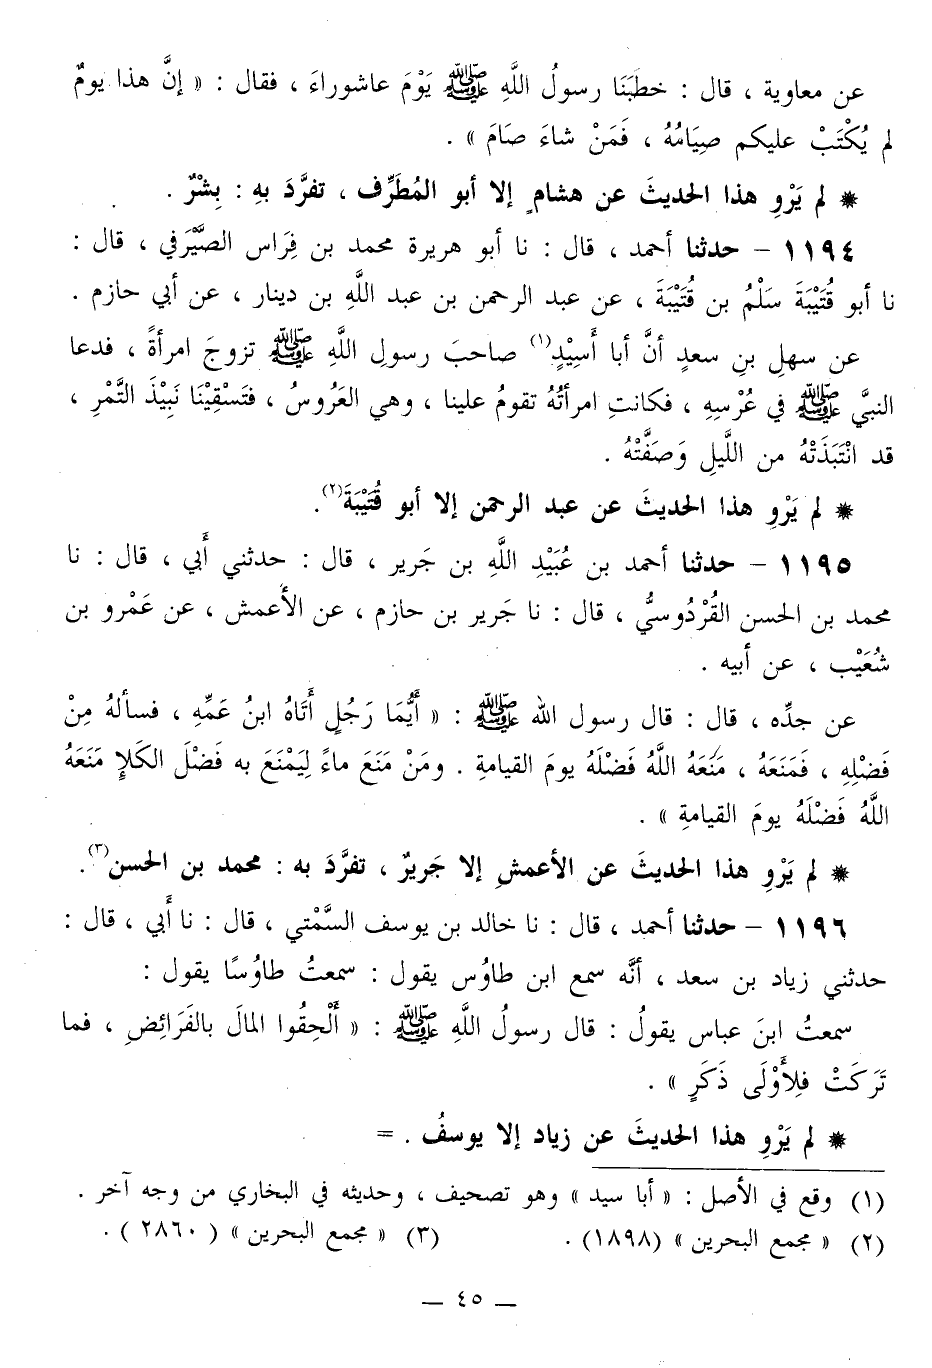 عن معاوية ، قال : خطَبَنَا رسولُ اللَّهِ ﷺ يَوْمَ عاشوراءَ ، فقال : « إنَّ هذا يومٌ
لم يُكْتَبْ عليكم صِيَامُهُ ، فَمَنْ شاءَ صَامَ » .
* لم يَرْوِ هذا الحديثَ عن هشامٍ إلا أبو المُطَرِّف ، تفرَّدَ بهِ : بِشْرٌ .
١١٩٤ - حدثنا أحمد ، قال : نا أبو هريرة محمد بن فِرَاس الصَّيْرَفي ، قال :
نا أبو قُتَيْبَةَ سَلْمُ بن قُتَيْبَةَ ، عن عبد الرحمن بن عبد اللَّهِ بن دينار ، عن أبي حازم .
عن سهلِ بنِ سعدٍ أنَّ أبا أُسَيْدٍ(١) صاحبَ رسولِ اللَّهِ ﷺ تزوجَ امرأةً ، فدعا
النبيَّ ﷺ في عُرْسِهِ ، فكانتِ امرأتُهُ تقومُ علينا ، وهي العَرُوسُ ، فتَسْقِيْنَا نَبِيْذَ التَّمْرِ ،
قد انْتَبَذَتْهُ من اللَّيلِ وَصَفَّتْهُ .
* لم يَرْوِ هذا الحديثَ عن عبد الرحمن إلا أبو قُتَيْبَةَ(٢).
١١٩٥ - حدثنا أحمد بن عُبَيْدِ اللَّهِ بن جَرير ، قال : حدثني أَبي ، قال : نا
محمد بن الحسن القُرْدُوسيُّ ، قال : نا جَرير بن حازم ، عن الأعمش ، عن عَمْرو بن
شُعَيْب ، عن أبيه .
عن جدِّه ، قال : قال رسول الله ﷺ : « أَيُّمَا رَجُلٍ أَتَاهُ ابنُ عَمِّهِ ، فسألهُ مِنْ
فَضْلِهِ ، فَمَنَعَهُ ، مَنَعَهُ اللَّهُ فَضْلَهُ يومَ القيامةِ . ومَنْ مَنَعَ ماءً لِيَمْنَعَ به فَضْلَ الكَلإِ مَنَعَهُ
اللَّهُ فَضْلَهُ يومَ القيامةِ » .
* لم يَرْوِ هذا الحديثَ عن الأعمشِ إلا جَريرٌ ، تفرَّدَ به : محمد بن الحسن(٣).
١١٩٦ - حدثنا أحمد ، قال : نا خالد بن يوسف السَّمْتي ، قال : نا أَبي ، قال :
حدثني زياد بن سعد ، أنَّه سمع ابن طاوُس يقول : سمعتُ طاوُسًا يقول :
سمعتُ ابنَ عباس يقولُ : قال رسولُ اللَّهِ ﷺ : « أَلْحِقُوا المالَ بالفَرَائِضِ ، فما
تَرَكَتْ فلِأَوْلَى ذَكَرٍ » .
* لم يَرْوِ هذا الحديثَ عن زياد إلا يوسفُ . =
(١) وقع في الأصل : « أبا سيد » وهو تصحيف ، وحديثه في البخاري من وجه آخر .
(٢) « مجمع البحرين » (١٨٩٨) . (٣) « مجمع البحرين » (٢٨٦٠) .
— ٤٥ —